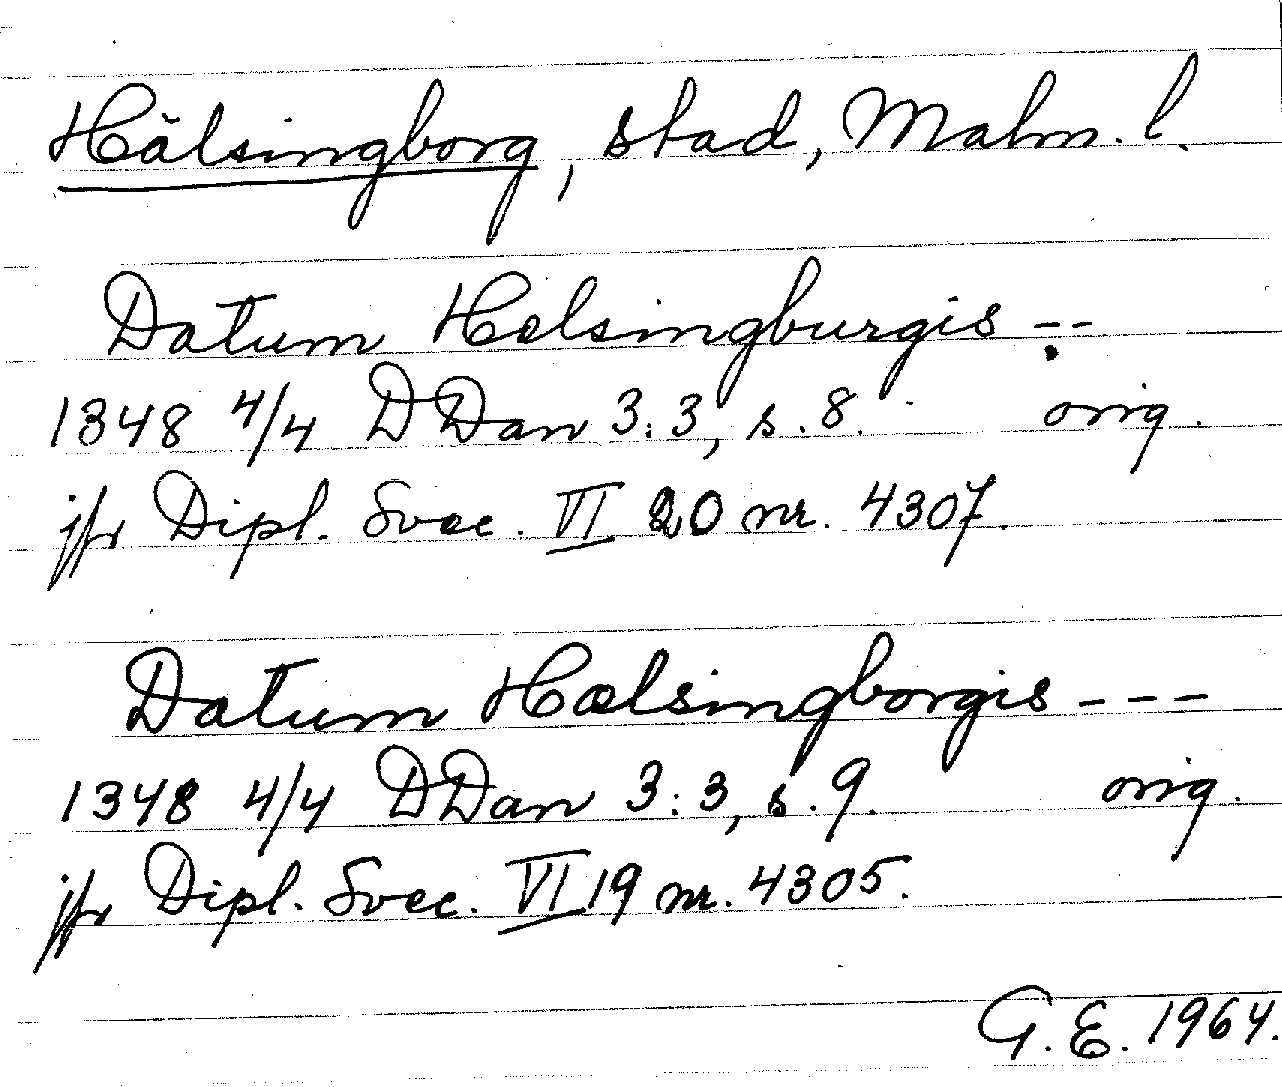 Hälsingborg, stad, Malm. l.
Datum Helsingburgis --
1348 4/4 DDan 3:3, s. 8. orig.
jfr Dipl. Svec. VI 20 nr. 4307.
Datum Hælsingborgis ---
1348 4/4 DDan 3:3, s. 9. orig.
jfr Dipl. Svec. VI 19 nr. 4305.
G. E. 1964.